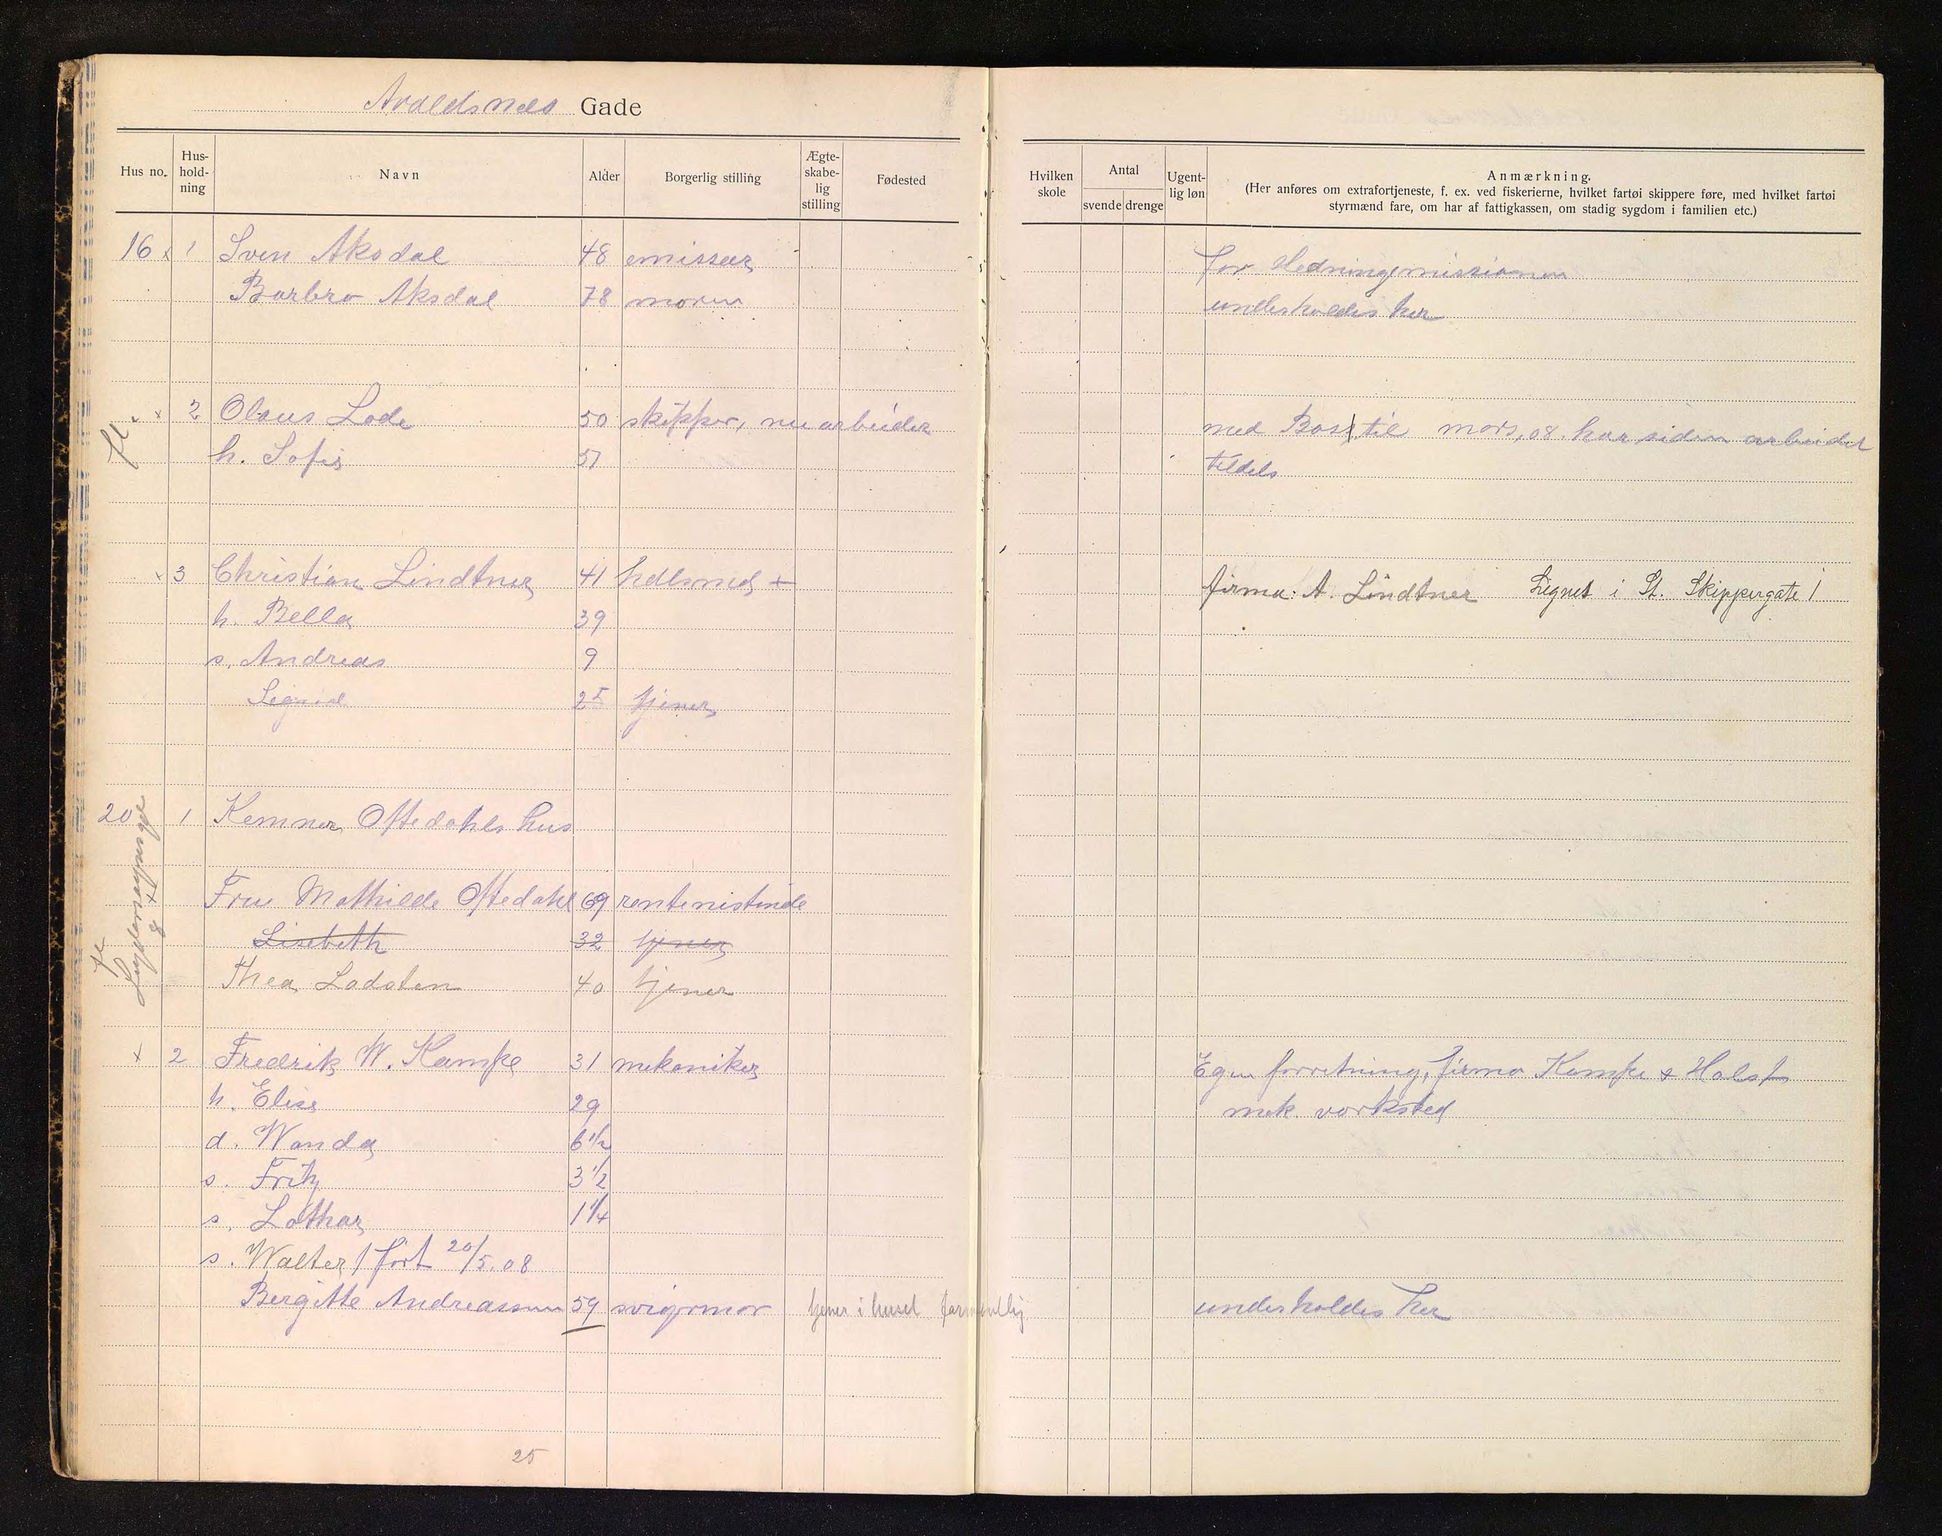 Avaldsnes Gade
Hus no. Hus-hold-ning Navn Alder Borgerlig stilling Ægte-skabe-lig stilling Fødested
Hvilken skole Antal svende drenge Ugent-lig løn Anmærkning.
(Her anføres om extrafortjeneste, f. ex. ved fiskerierne, hvilket fartøi skippere føre, med hvilket fartøi
styrmænd fare, om har af fattigkassen, om stadig sygdom i familien etc.)
16 x 1 Sven Aksdal 48 emissær for Hedningemissionen
Barbro Aksdal 78 moren underholdes her
fl. x 2 Olaus Lode 50 skipper, nu arbeider med til mars, 08. har siden arbeidet
h. Sofie 57 tildels
x 3 Christian Lindtner 41 hdlsmd + firma: A. Lindtner Lignet i St. Skippergate 1
h. Bella 39
s. Andreas 9
Sigrid 25 tjener
20 1 Kemner Oftedahls hus
fl
Frue Mathilde Oftedahl 69 rentenistinde
Lisebeth 32 tjener
Thea Ladsten 40 tjener
+ 2 Fredrik W. Kampe 31 mekaniker Egen forretning, firma Kampe & Holst
h. Elise 29 mek verksted
d. Wanda 6 1/2
s. Fritz 3 1/2
s. Lothar 1 1/4
s. Walter / født 20/5.08
Bergitte Andreassen 59 svigermor tjener i huset underholdes her
25